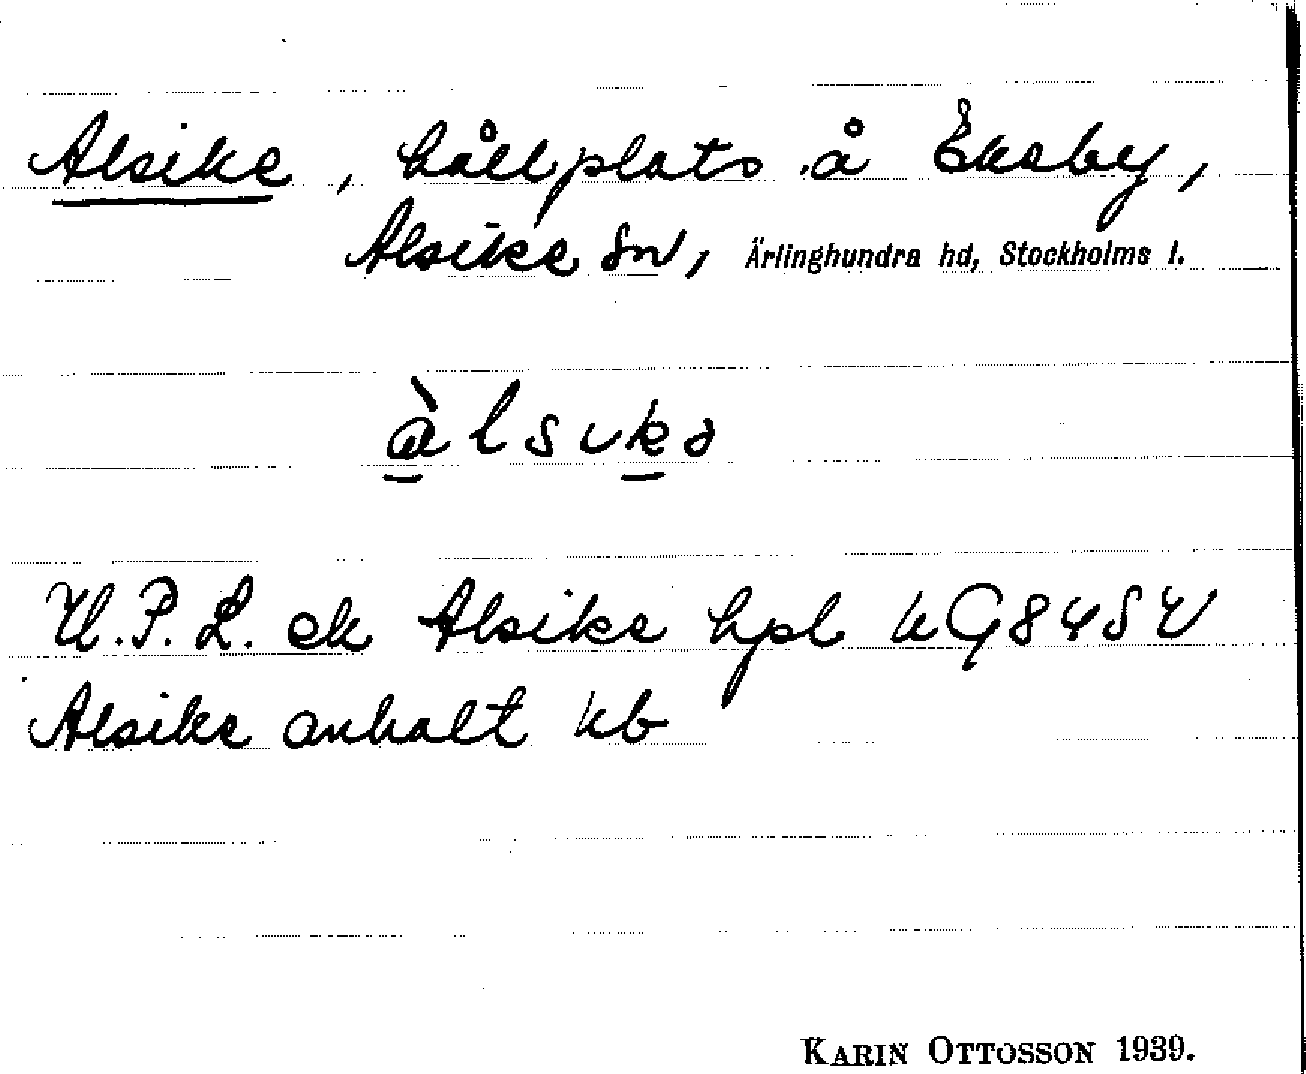 Alsike, hållplats å Eksby,
Alsike sn, Ärlinghundra hd, Stockholms l.
àlsıkə
U.P.L. ek Alsike hpl kG84SV
Alsike anhalt kb
KARIN OTTOSSON 1939.